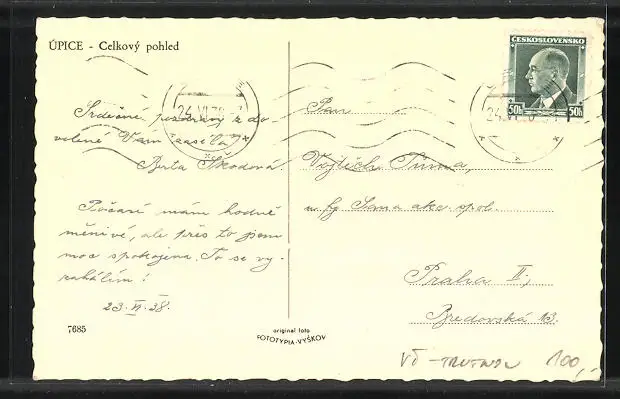 ÚPICE - Celkový pohled
ČESKOSLOVENSKO
50h 50h
24.VI.38
Srdečné pozdravy z do-
volené Vám zasílá
Berta Škodová.
Počasí mám hodně
měnivé, ale přes to jsem
moc spokojena. To se vy-
nahájím!
23.VI.38.
Pan
Vojtěch Tůma,
u fy Sana akc. spol.
Praha II.,
Bredovská 13.
7685
original foto
FOTOTYPIA-VYŠKOV
VČ - TRUTNOV 100,-